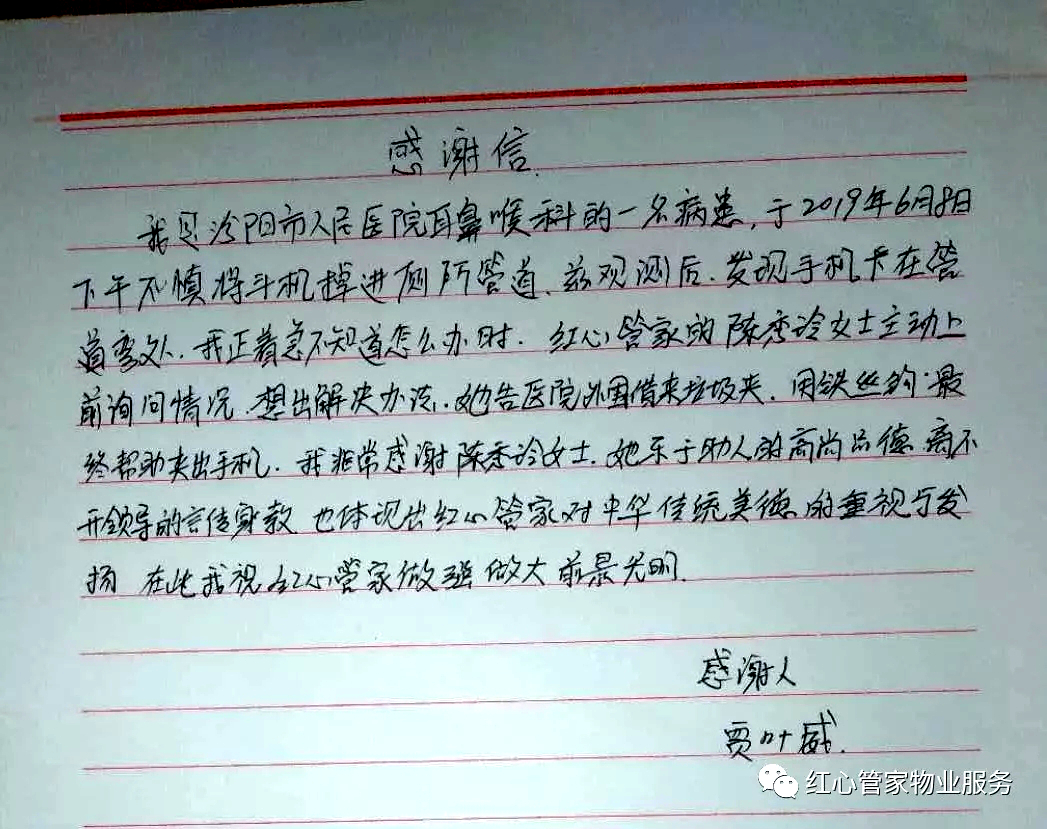 感谢信.
我是汾阳市人民医院耳鼻喉科的一名病患,于2019年6月8日
下午不慎将手机掉进厕所管道、兹观测后.发现手机卡在管
道弯处.我正着急不知道怎么办时.红心管家的陈秀玲女士主动上
前询问情况.想出解决办法.她告医院外围借来垃圾夹.用铁丝钩.最
终帮助夹出手机.我非常感谢陈秀玲女士.她乐于助人的高尚品德.离不
开领导的言传身教 也体现出红心管家对中华传统美德的重视与发
扬 在此我祝红心管家做强做大前景光明.
感谢人
贾叶威.
红心管家物业服务